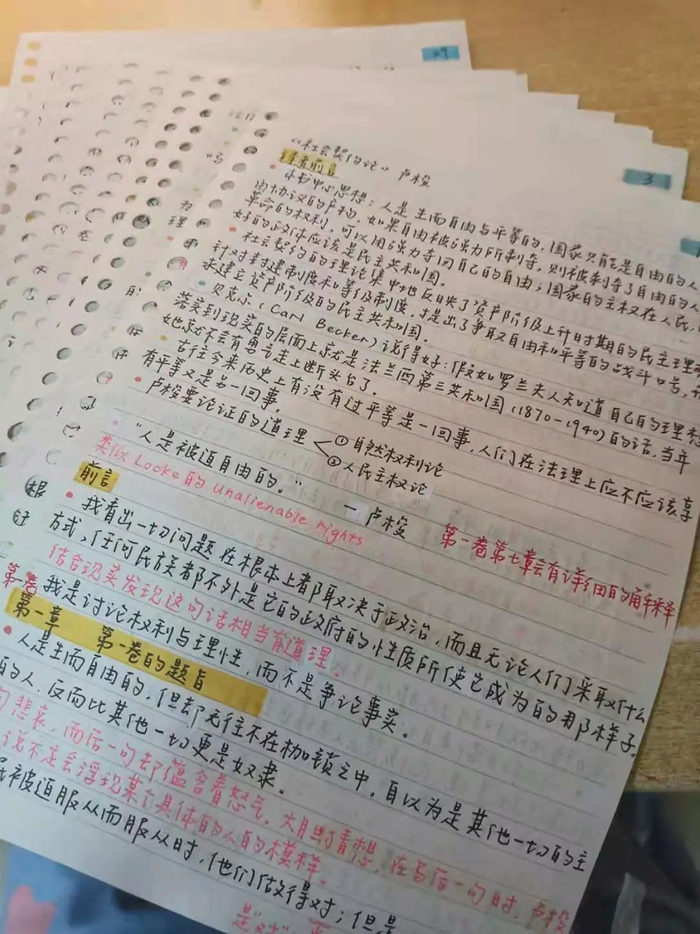 27
3
《社会契约论》 卢梭
译者前言
中心思想：人是生而自由与平等的，国家只能是自由的人
由协议的产物，如果自由被强力所剥夺，则被剥夺了自由的人
革命的权利，可以用强力夺回自己的自由；国家的主权在人民，
好的政体应该是民主共和国。
社会契约的理论集中地反映了资产阶级上升时期的民主理
针对封建制度和等级制度，才提出了争取自由和平等的战斗口号，
求建立资产阶级的民主共和国。
贝克尔（Carl Becker）说得好：假如罗兰夫人知道自己的理想
落实到现实的层面上就是法兰西第三共和国（1870-1940）的话，当年
她就不会有勇气走上断头台了。
古往今来历史上有没有过平等是一回事，人们在法理上应不应该享
有平等又是另一回事。
卢梭要论证的道理 ①自然权利论
②人民主权论
“人是被迫自由的。”
—卢梭 第一卷第七章会有详细的解释
类似Locke的unalienable rights
前言
我看出一切问题在根本上都取决于政治，而且无论人们采取什么
方式，任何民族都不外是它的政府的性质所使它成为的那样子。
结合现实发现这句话相当有道理。
第一卷 我是讨论权利与理性，而不是争论事实。
第一章 第一卷的题旨
人是生而自由的，但却无往不在枷锁之中，自以为是其他一切的主
的人，反而比其他一切更是奴隶。
句悲哀，而后一句却蕴含着怒气。大胆猜想，在写后一句时，卢梭
说不定会浮现某个具体的人的模样。
民被迫服从而服从时，他们做得对；但是
是“对”